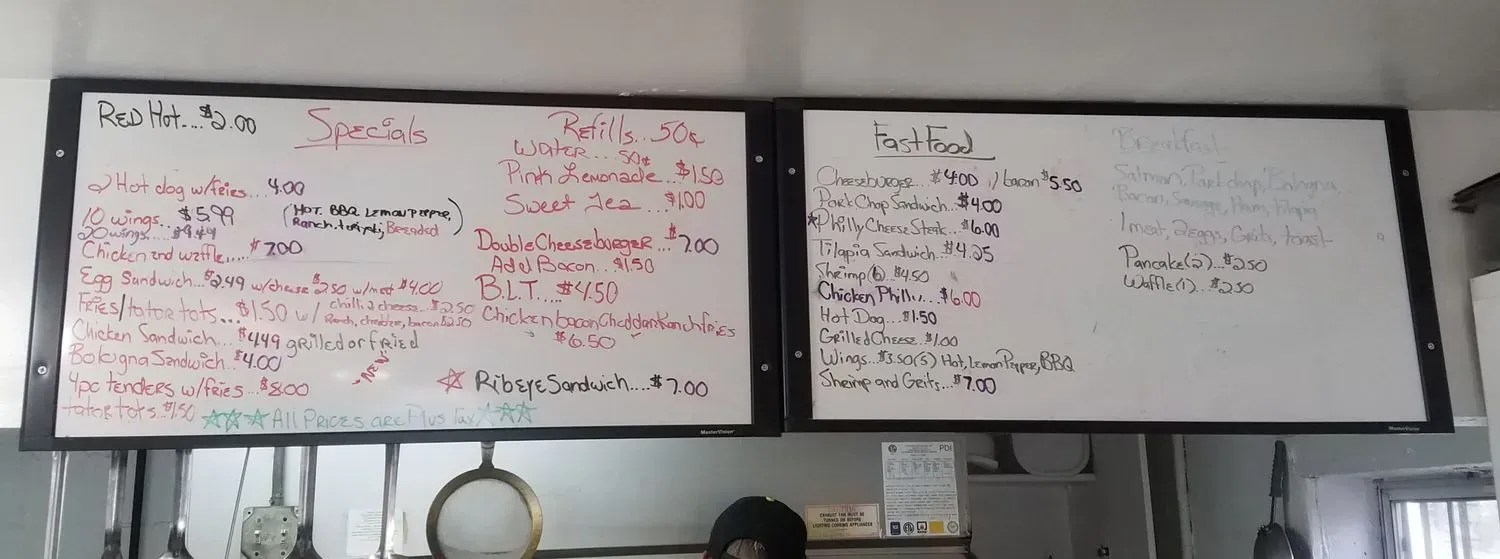 RED Hot.... $2.00
Specials
2 Hot dog w/fries... 4.00
10 wings... $5.99
20 wings.... $9.49
(HOT. BBQ LEMON PEPPER,
Ranch, teriyaki, Breaded
Chicken and waffle,.... $7.00
Egg Sandwich... $2.49 w/cheese $2.50 w/meat $4.00
FRIES/tator tots... $1.50 w/ chilli & cheese... $2.50
Ranch, cheddar, bacon $2.50
Chicken Sandwich... $4.49 grilled or fried
Bologna Sandwich. $4.00
NEW
4pc tenders w/fries... $8.00
tator tots. $1.50
All PRICES are Plus Tax
Refills.. 50¢
WATER... 50¢
Pink Lemonade... $1.50
Sweet Tea ... $1.00
Double Cheeseburger... $7.00
Add Bacon... $1.50
B.L.T.... $4.50
Chicken bacon Cheddar Ranch fries
$6.50
RibEye Sandwich.... $7.00
MasterVision
Fast Food
Cheeseburger... $4.00 w/ bacon $5.50
Pork Chop Sandwich.. $4.00
Philly Cheese Steak.. $6.00
Tilapia Sandwich.. $4.25
Shrimp (6).. $4.50
Chicken Philly.. $6.00
Hot Dog... $1.50
Grilled Cheese.. $1.00
Wings... $3.50 (5) Hot, Lemon Pepper, BBQ
Shrimp and Grits... $7.00
Breakfast
Salmon, Pork chop, Bologna,
Bacon, Sausage, Ham, Tilapia
1 meat, 2 eggs, Grits, toast
Pancake (2)... $2.50
Waffle (1)... $2.50
MasterVision
PDI
EXHAUST FAN MUST BE
TURNED ON BEFORE
LIGHTING COOKING APPLIANCES